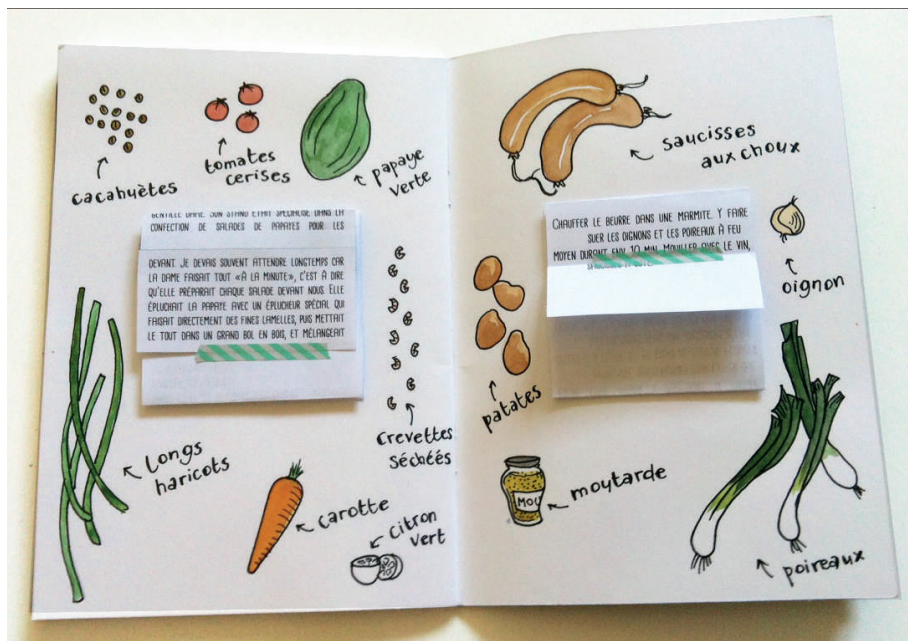 cacahuètes
tomates
cerises
papaye
verte
GENTILLE DAME. SON STAND ÉTAIT SPÉCIALISÉ DANS LA
CONFECTION DE SALADES DE PAPAYES POUR LES
DEVANT. JE DEVAIS SOUVENT ATTENDRE LONGTEMPS CAR
LA DAME FAISAIT TOUT «À LA MINUTE», C'EST À DIRE
QU'ELLE PRÉPARAIT CHAQUE SALADE DEVANT NOUS. ELLE
ÉPLUCHAIT LA PAPAYE AVEC UN ÉPLUCHEUR SPÉCIAL QUI
FAISAIT DIRECTEMENT DES FINES LAMELLES, PUIS METTAIT
LE TOUT DANS UN GRAND BOL EN BOIS, ET MÉLANGEAIT
crevettes
séchéés
longs
haricots
carotte
citron
vert
saucisses
aux choux
CHAUFFER LE BEURRE DANS UNE MARMITE. Y FAIRE
SUER LES OIGNONS ET LES POIREAUX À FEU
MOYEN DURANT ENV. 10 MIN. MOUILLER AVEC LE VIN,
oignon
patates
MOU
moutarde
poireaux